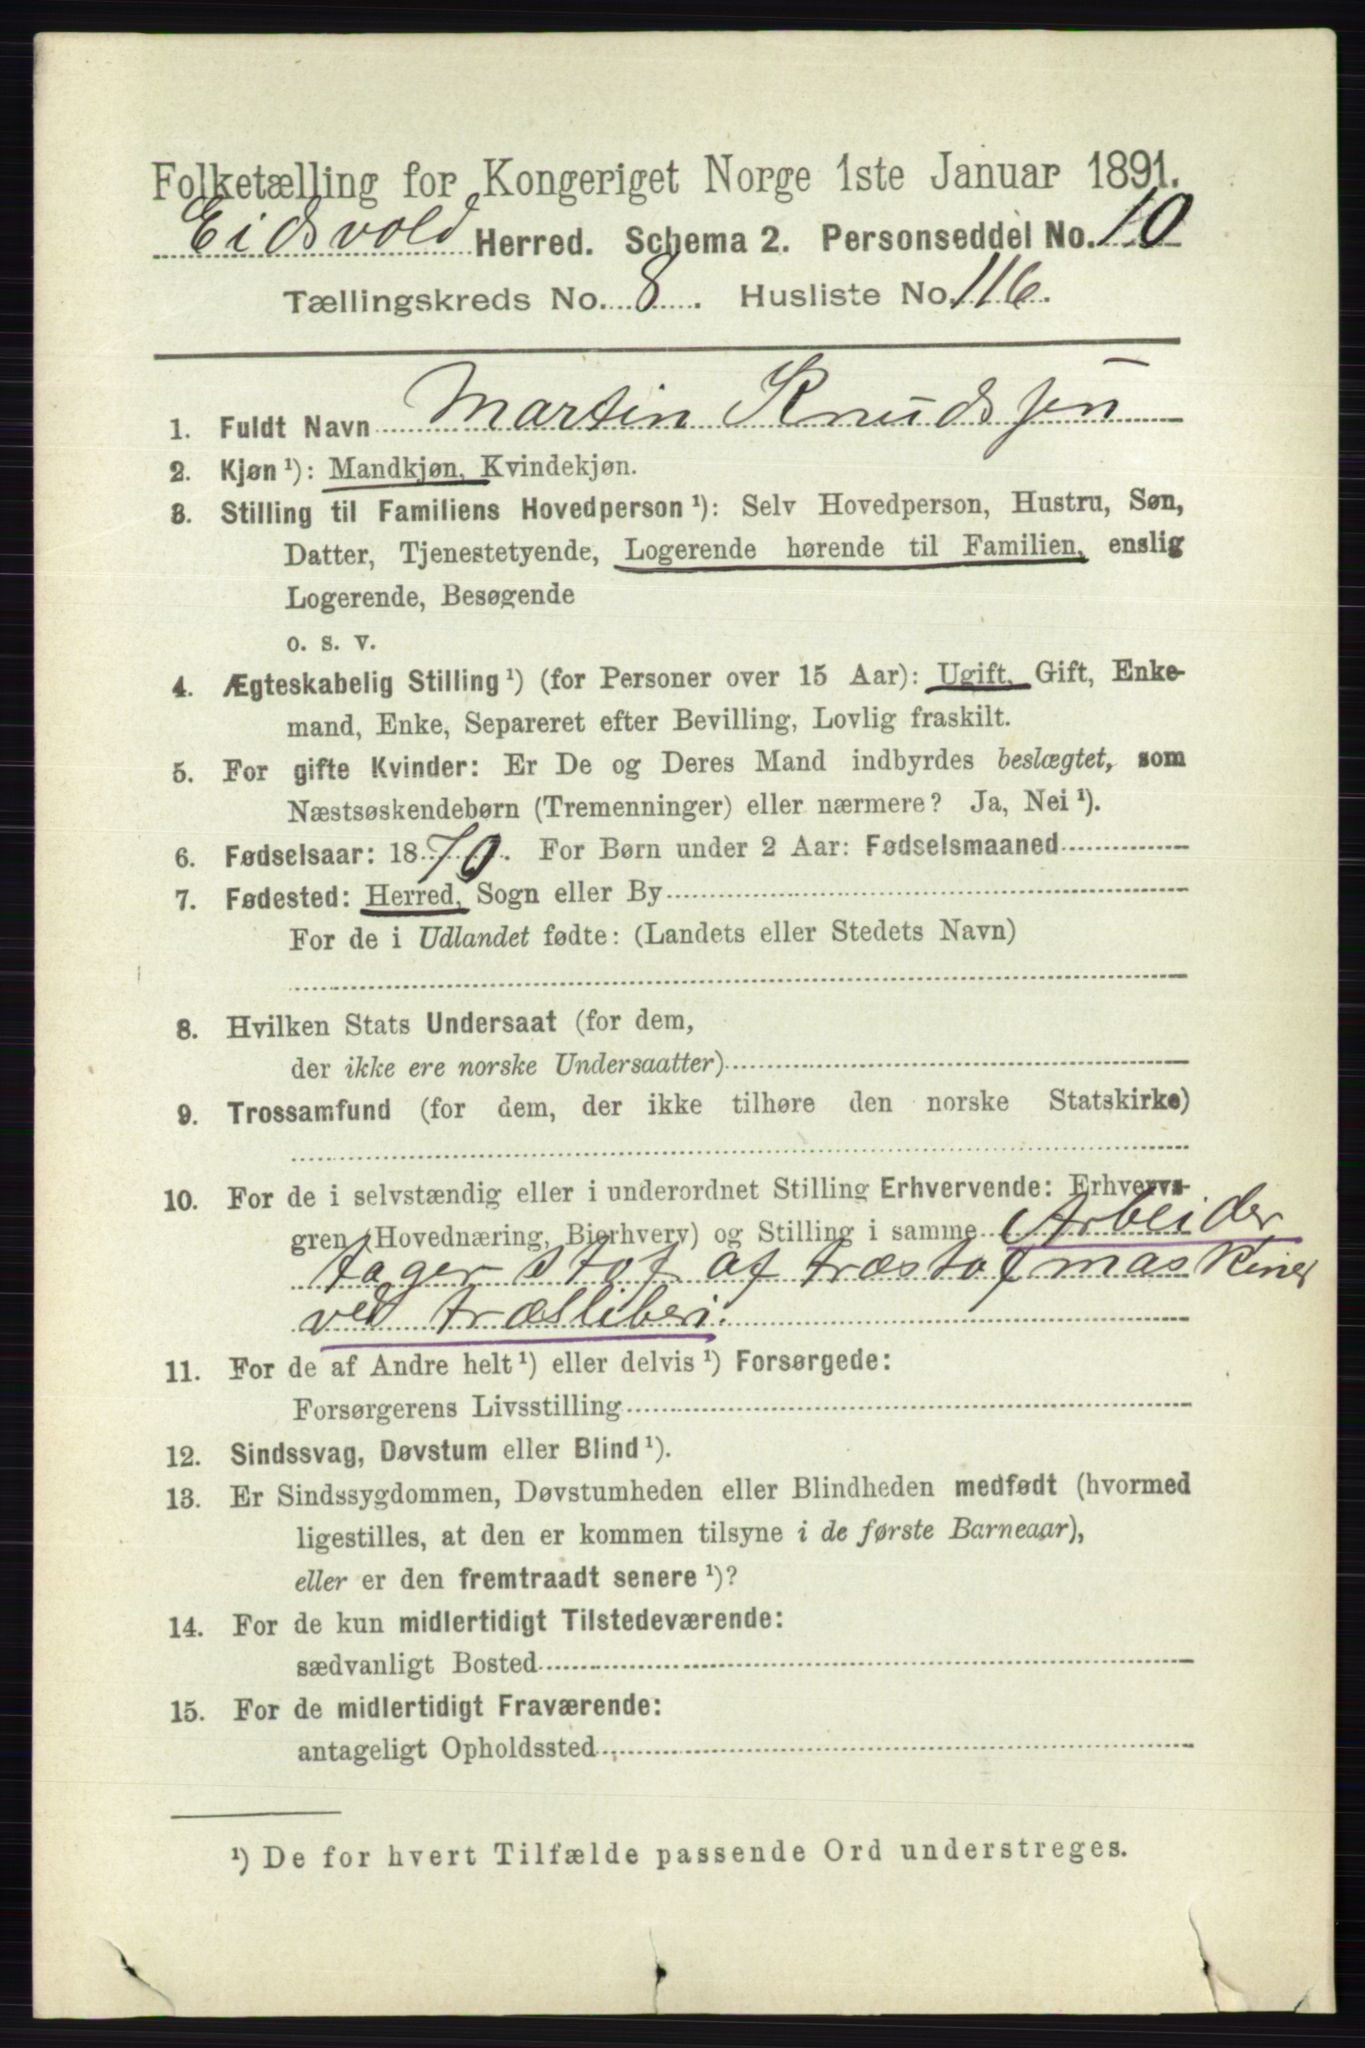 Folketælling for Kongeriget Norge 1ste Januar 1891.
Eidsvold Herred. Schema 2. Personseddel No. 10
Tællingskreds No. 8. Husliste No. 116.
1. Fuldt Navn Martin Knudssen
2. Kjøn¹): Mandkjøn, Kvindekjøn.
3. Stilling til Familiens Hovedperson¹): Selv Hovedperson, Hustru, Søn,
Datter, Tjenestetyende, Logerende hørende til Familien, enslig
Logerende, Besøgende
o. s. v.
4. Ægteskabelig Stilling¹) (for Personer over 15 Aar): Ugift, Gift, Enke-
mand, Enke, Separeret efter Bevilling, Lovlig fraskilt.
5. For gifte Kvinder: Er De og Deres Mand indbyrdes beslægtet, som
Næstsøskendebørn (Tremenninger) eller nærmere? Ja, Nei¹).
6. Fødselsaar: 1870. For Børn under 2 Aar: Fødselsmaaned
7. Fødested: Herred, Sogn eller By
For de i Udlandet fødte: (Landets eller Stedets Navn)
8. Hvilken Stats Undersaat (for dem,
der ikke ere norske Undersaatter)
9. Trossamfund (for dem, der ikke tilhøre den norske Statskirke)
10. For de i selvstændig eller i underordnet Stilling Erhvervende: Erhvervs-
gren (Hovednæring, Bierhverv) og Stilling i samme Arbeider
tager stof af træstofmaskiner
ved træsliberi.
11. For de af Andre helt¹) eller delvis¹) Forsørgede:
Forsørgerens Livsstilling
12. Sindssvag, Døvstum eller Blind¹).
13. Er Sindssygdommen, Døvstumheden eller Blindheden medfødt (hvormed
ligestilles, at den er kommen tilsyne i de første Barneaar),
eller er den fremtraadt senere¹)?
14. For de kun midlertidigt Tilstedeværende:
sædvanligt Bosted
15. For de midlertidigt Fraværende:
antageligt Opholdssted
¹) De for hvert Tilfælde passende Ord understreges.